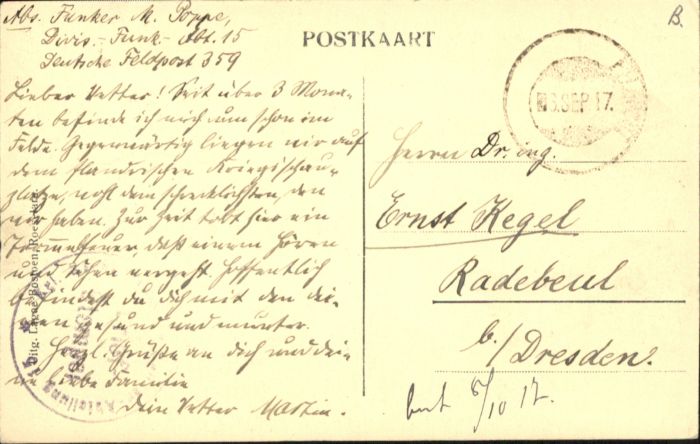 Abs. Funker M. Poppe,
Divis.-Funk-Abt. 15
Deutsche Feldpost 359
Lieber Vetter! Seit über 3 Mona-
ten befinde ich mich nun schon im
Felde. Gegenwärtig liegen wir auf
dem flandrischen Kriegsschau-
platze, wohl dem schrecklichsten, den
wir haben. Zur Zeit tobt hier ein
Trommelfeuer, daß einem Hören
und Sehen vergeht. Hoffentlich
befindest du dich mit den dei-
nen gesund und munter.
Herzl. Grüße an dich und dei-
ne liebe Familie
dein Vetter Martin.
POSTKAART
B.
SEP 17.
Herrn Dr. ing.
Ernst Kegel
Radebeul
b/Dresden.
5/10 17.
Uitg. Rosseel